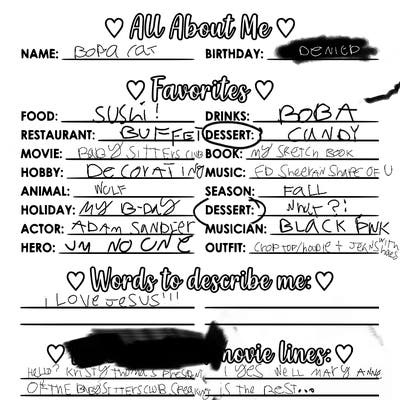 ♡ All About Me ♡
NAME: BOBA CAT BIRTHDAY: DENIED
♡ Favorites ♡
FOOD: SUSHi! DRINKS: BOBA
RESTAURANT: BUFFET DESSERT: CANDY
MOVIE: BABY SITTERS CLUB BOOK: MY SKETCH BOOK
HOBBY: DECORATING MUSIC: ED Sheeran SHAPE OF U
ANIMAL: WOLF SEASON: FALL
HOLIDAY: MY B-DAY DESSERT: WHAT?!
ACTOR: ADAM SANDLER MUSICIAN: BLACK PINK
HERO: UM NO ONE OUTFIT: CROP TOP/HOODIE + JEANS WITH HOLES
♡ Words to describe me: ♡
I LOVE JESUS!!!
movie lines: ♡
HELLO? KRISTY THOMAS PRESIDENT I YES WELL MARY ANNE
OF THE BABYSITTERS CLUB SPEAKING IS THE BEST...